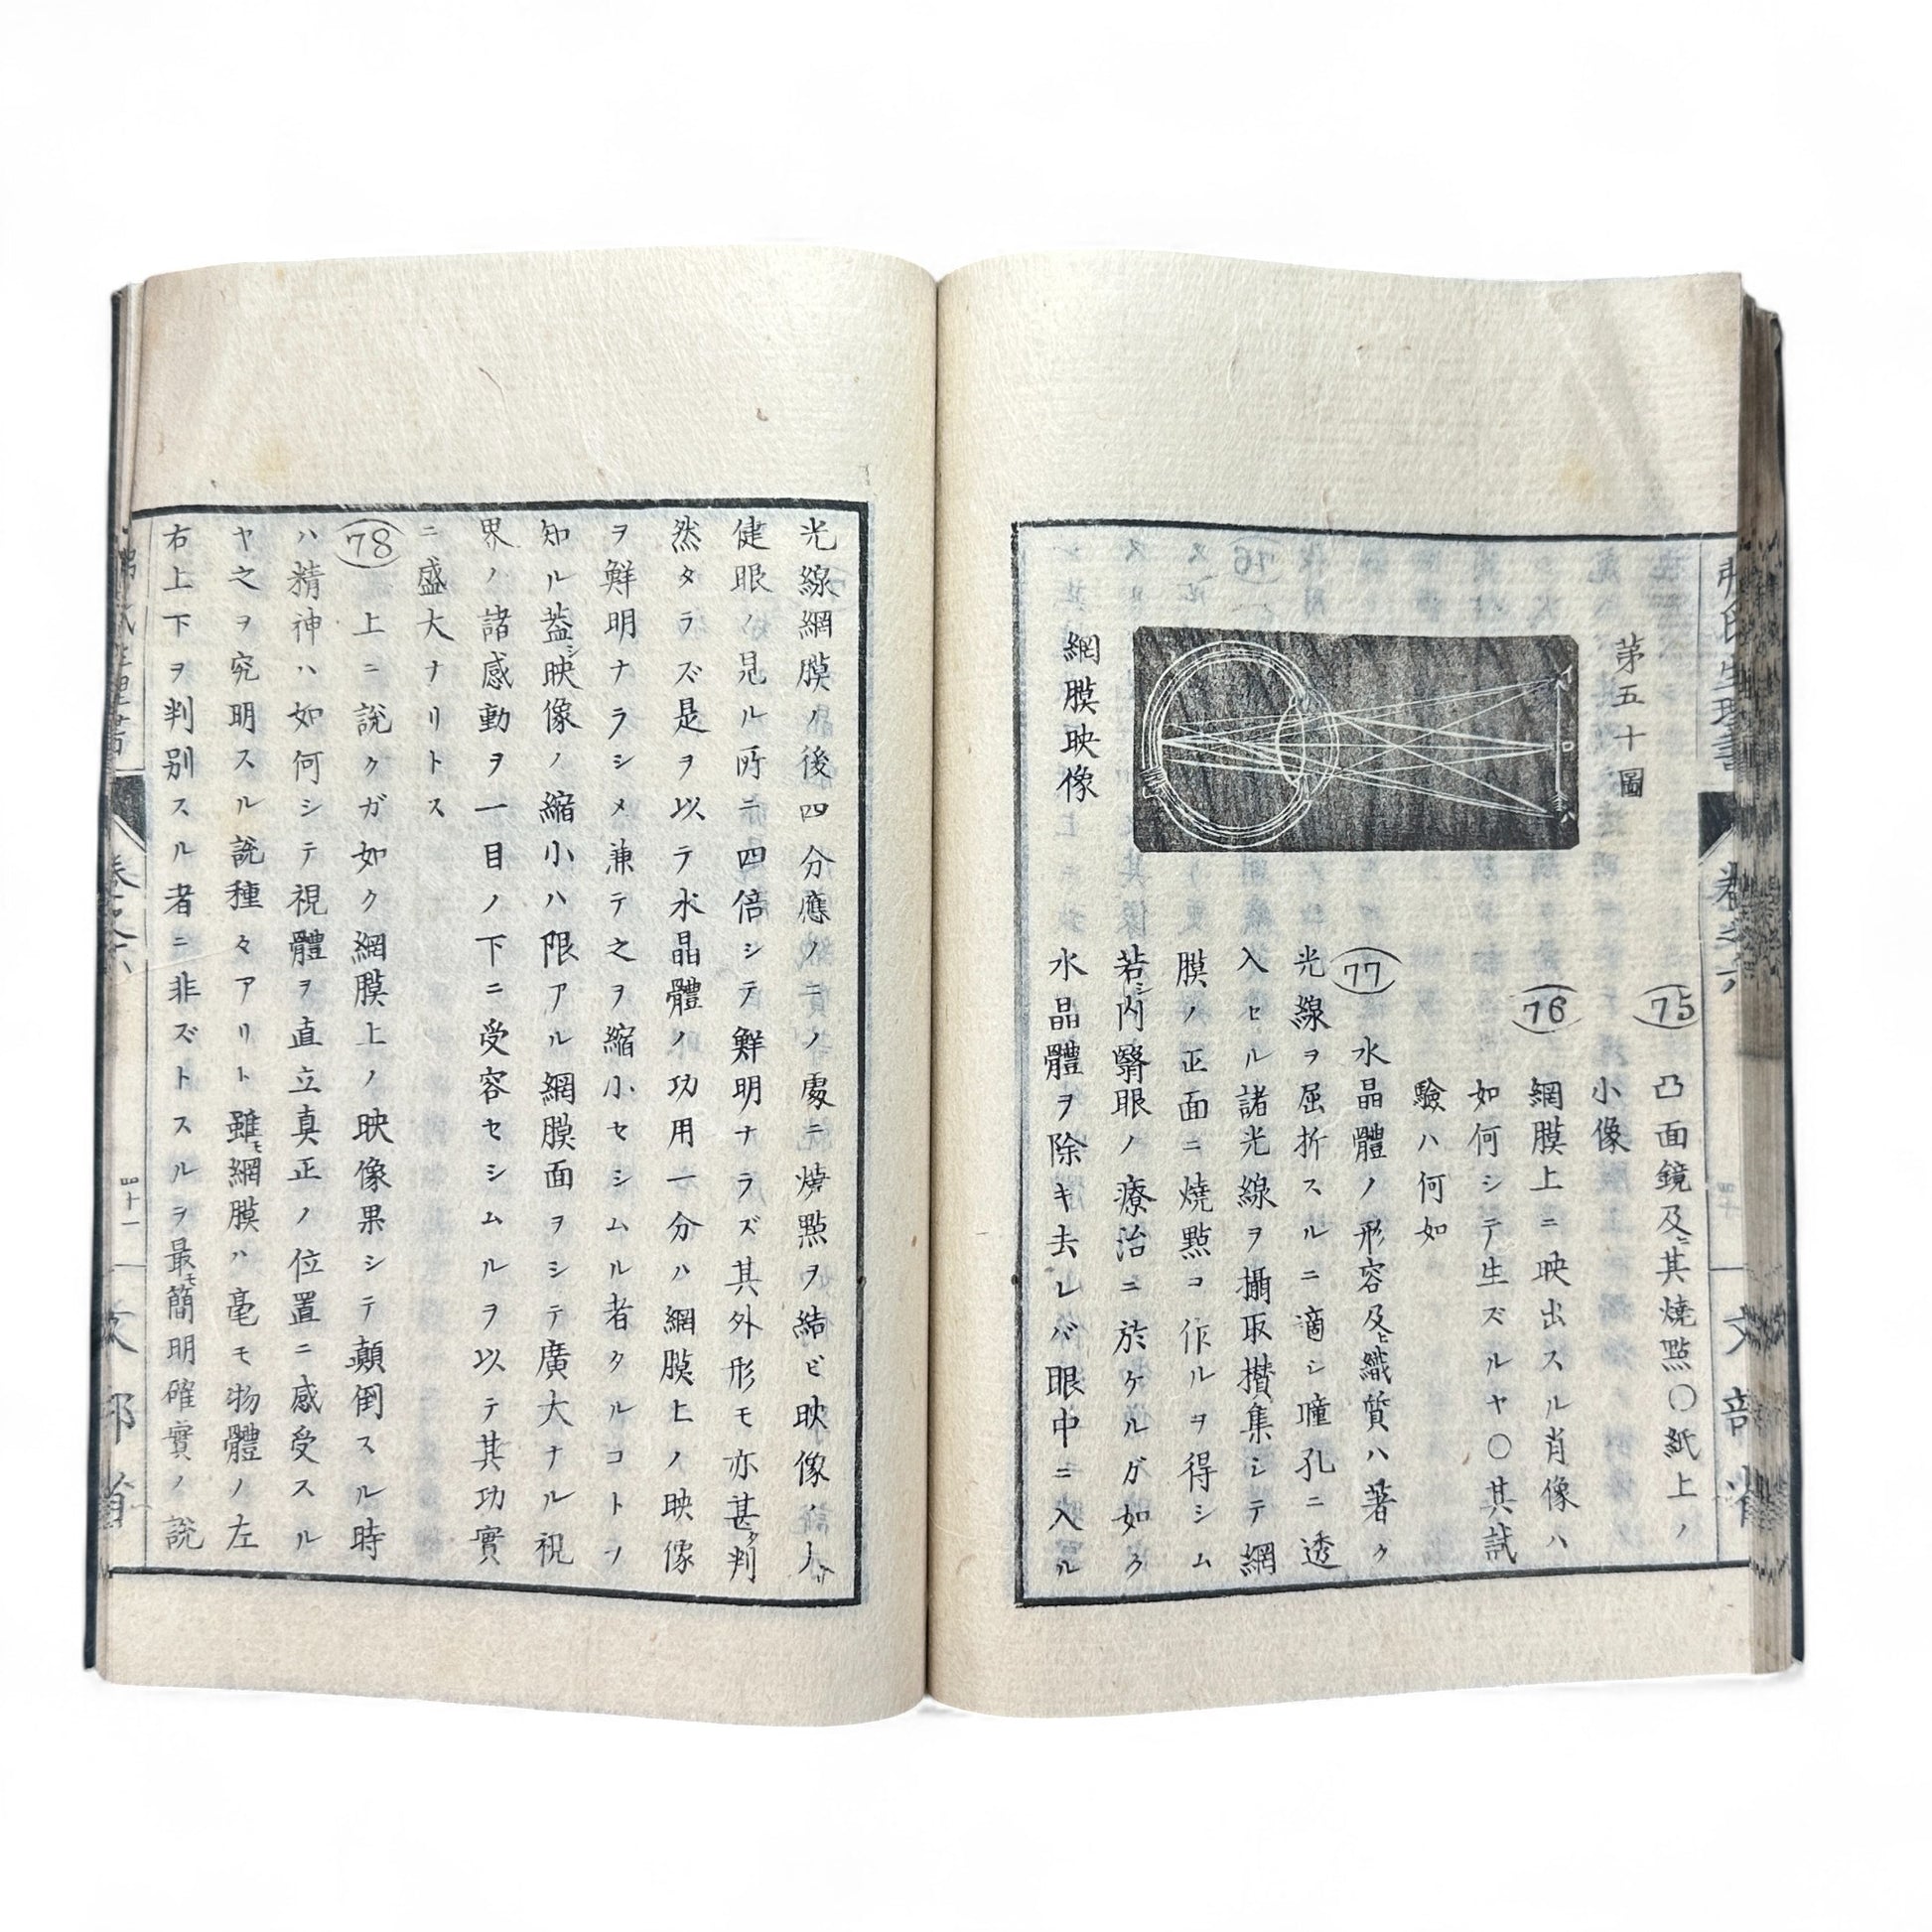 第五十圖
網膜映像
イ
ロ
ハ
(75)
凸面鏡及ビ其燒點〇紙上ノ
小像
(76)
網膜上ニ映出スル肖像ハ
如何シテ生ズルヤ〇其試
驗ハ何如
(77)
水晶體ノ形容及ヒ織質ハ著ク
光線ヲ屈折スルニ適シ瞳孔ニ透
入セル諸光線ヲ攝取攅集シテ網
膜ノ正面ニ燒點ヲ作ルヲ得シム
若シ内翳眼ノ療治ニ於ケルガ如ク
水晶體ヲ除キ去レバ眼中ニ入ル
光線網膜ノ後四分應ノ二ノ處ニ燒點ヲ結ビ映像ノ人
健眼ノ見ル所ニ四倍シテ鮮明ナラズ其外形モ亦甚タ判
然タラズ是ヲ以テ水晶體ノ功用一分ハ網膜上ノ映像
ヲ鮮明ナラシメ兼テ之ヲ縮小セシムル者タルコトヲ
知ル葢シ映像ノ縮小ハ限アル網膜面ヲシテ廣大ナル視
界ノ諸感動ヲ一目ノ下ニ受容セシムルヲ以テ其功實
ニ盛大ナリトス
(78)
上ニ説クガ如ク網膜上ノ映像果シテ顛倒スル時
ハ精神ハ如何シテ視體ヲ直立真正ノ位置ニ感受スル
ヤ之ヲ究明スル説種々アリト雖モ網膜ハ毫モ物體ノ左
右上下ヲ判別スル者ニ非ズトスルヲ最モ簡明確實ノ説
卷之六
四十一
文部省